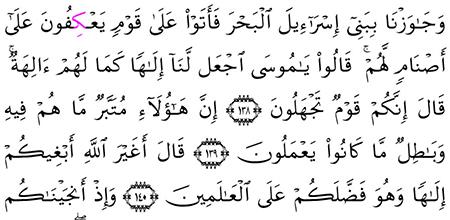 وَجَـٰوَزْنَا بِبَنِىٓ إِسْرَٰٓءِيلَ ٱلْبَحْرَ فَأَتَوْا۟ عَلَىٰ قَوْمٍ يَعْكِفُونَ عَلَىٰٓ
أَصْنَامٍ لَّهُمْ ۚ قَالُوا۟ يَـٰمُوسَى ٱجْعَل لَّنَآ إِلَـٰهًا كَمَا لَهُمْ ءَالِهَةٌ ۚ
قَالَ إِنَّكُمْ قَوْمٌ تَجْهَلُونَ ﴿١٣٨﴾ إِنَّ هَـٰٓؤُلَآءِ مُتَبَّرٌ مَّا هُمْ فِيهِ
وَبَـٰطِلٌ مَّا كَانُوا۟ يَعْمَلُونَ ﴿١٣٩﴾ قَالَ أَغَيْرَ ٱللَّهِ أَبْغِيكُمْ
إِلَـٰهًا وَهُوَ فَضَّلَكُمْ عَلَى ٱلْعَـٰلَمِينَ ﴿١٤٠﴾ وَإِذْ أَنجَيْنَـٰكُم